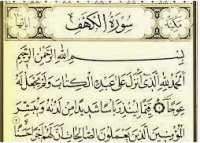 سورة الكهف
بسم الله الرحمن الرحيم
الحمد لله الذي أنزل على عبده الكتاب ولم يجعل له
عوجا ۝ قيما لينذر بأسا شديدا من لدنه ويبشر
المؤمنين الذين يعملون الصالحات أن لهم أجرا حسنا